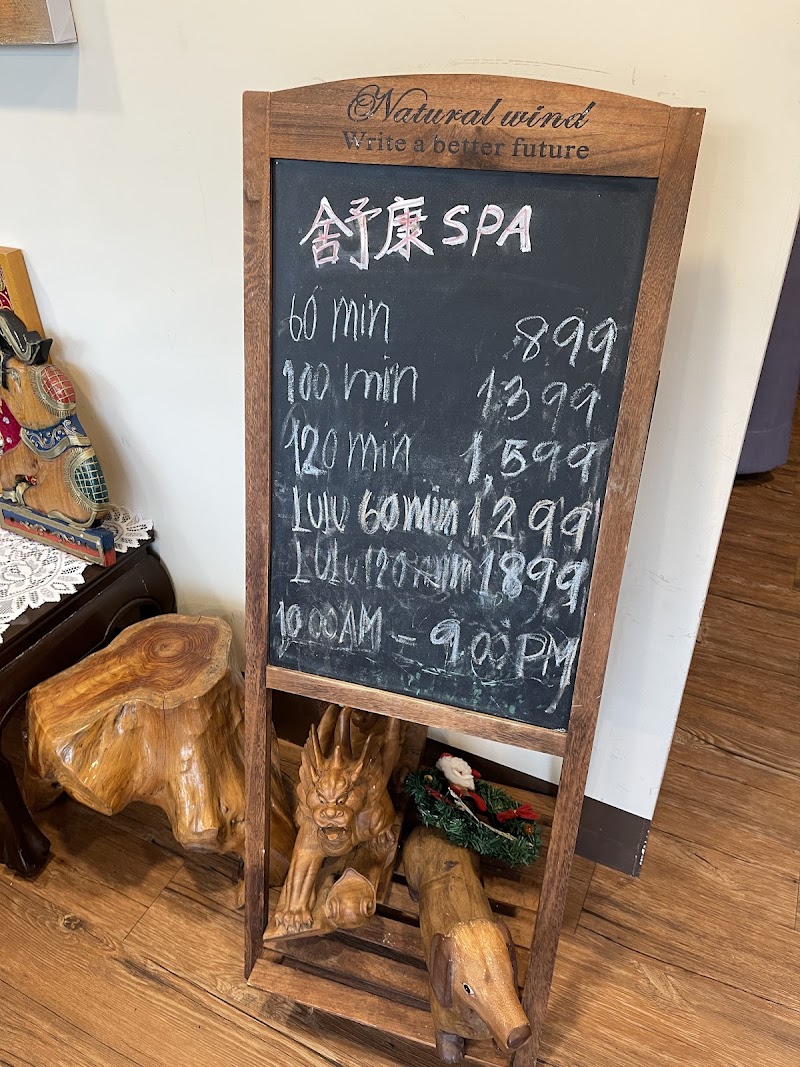 Natural wind
Write a better future
舒康SPA
60 min 899
100 min 1399
120 min 1,599
LULU 60min 1,299
LULU 120 min 1899
10:00AM - 9:00 PM